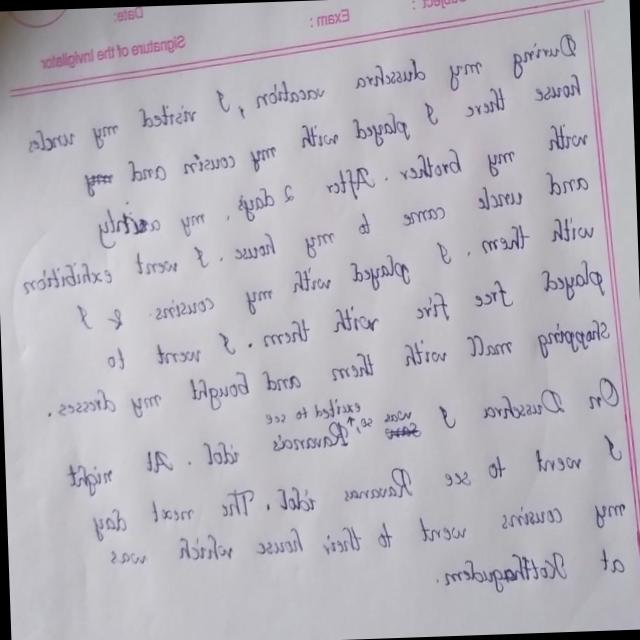 Subject :
Exam :
Date:
Signature of the Invigilator
During my dusshra vacation, I visited my uncles
house there I played with my cousin and my
with my brother. After 2 days. my
and uncle came to my house. I went exhibition
with them. I played with my cousins & I
played free fire with them. I went to
shopping mall with them and bought my dresses.
On Dusshra I was so excited to see Ravana's idol. At night
I went to see Ravanas idol. The next day
my cousins went to their house which was
at Kothagudem.